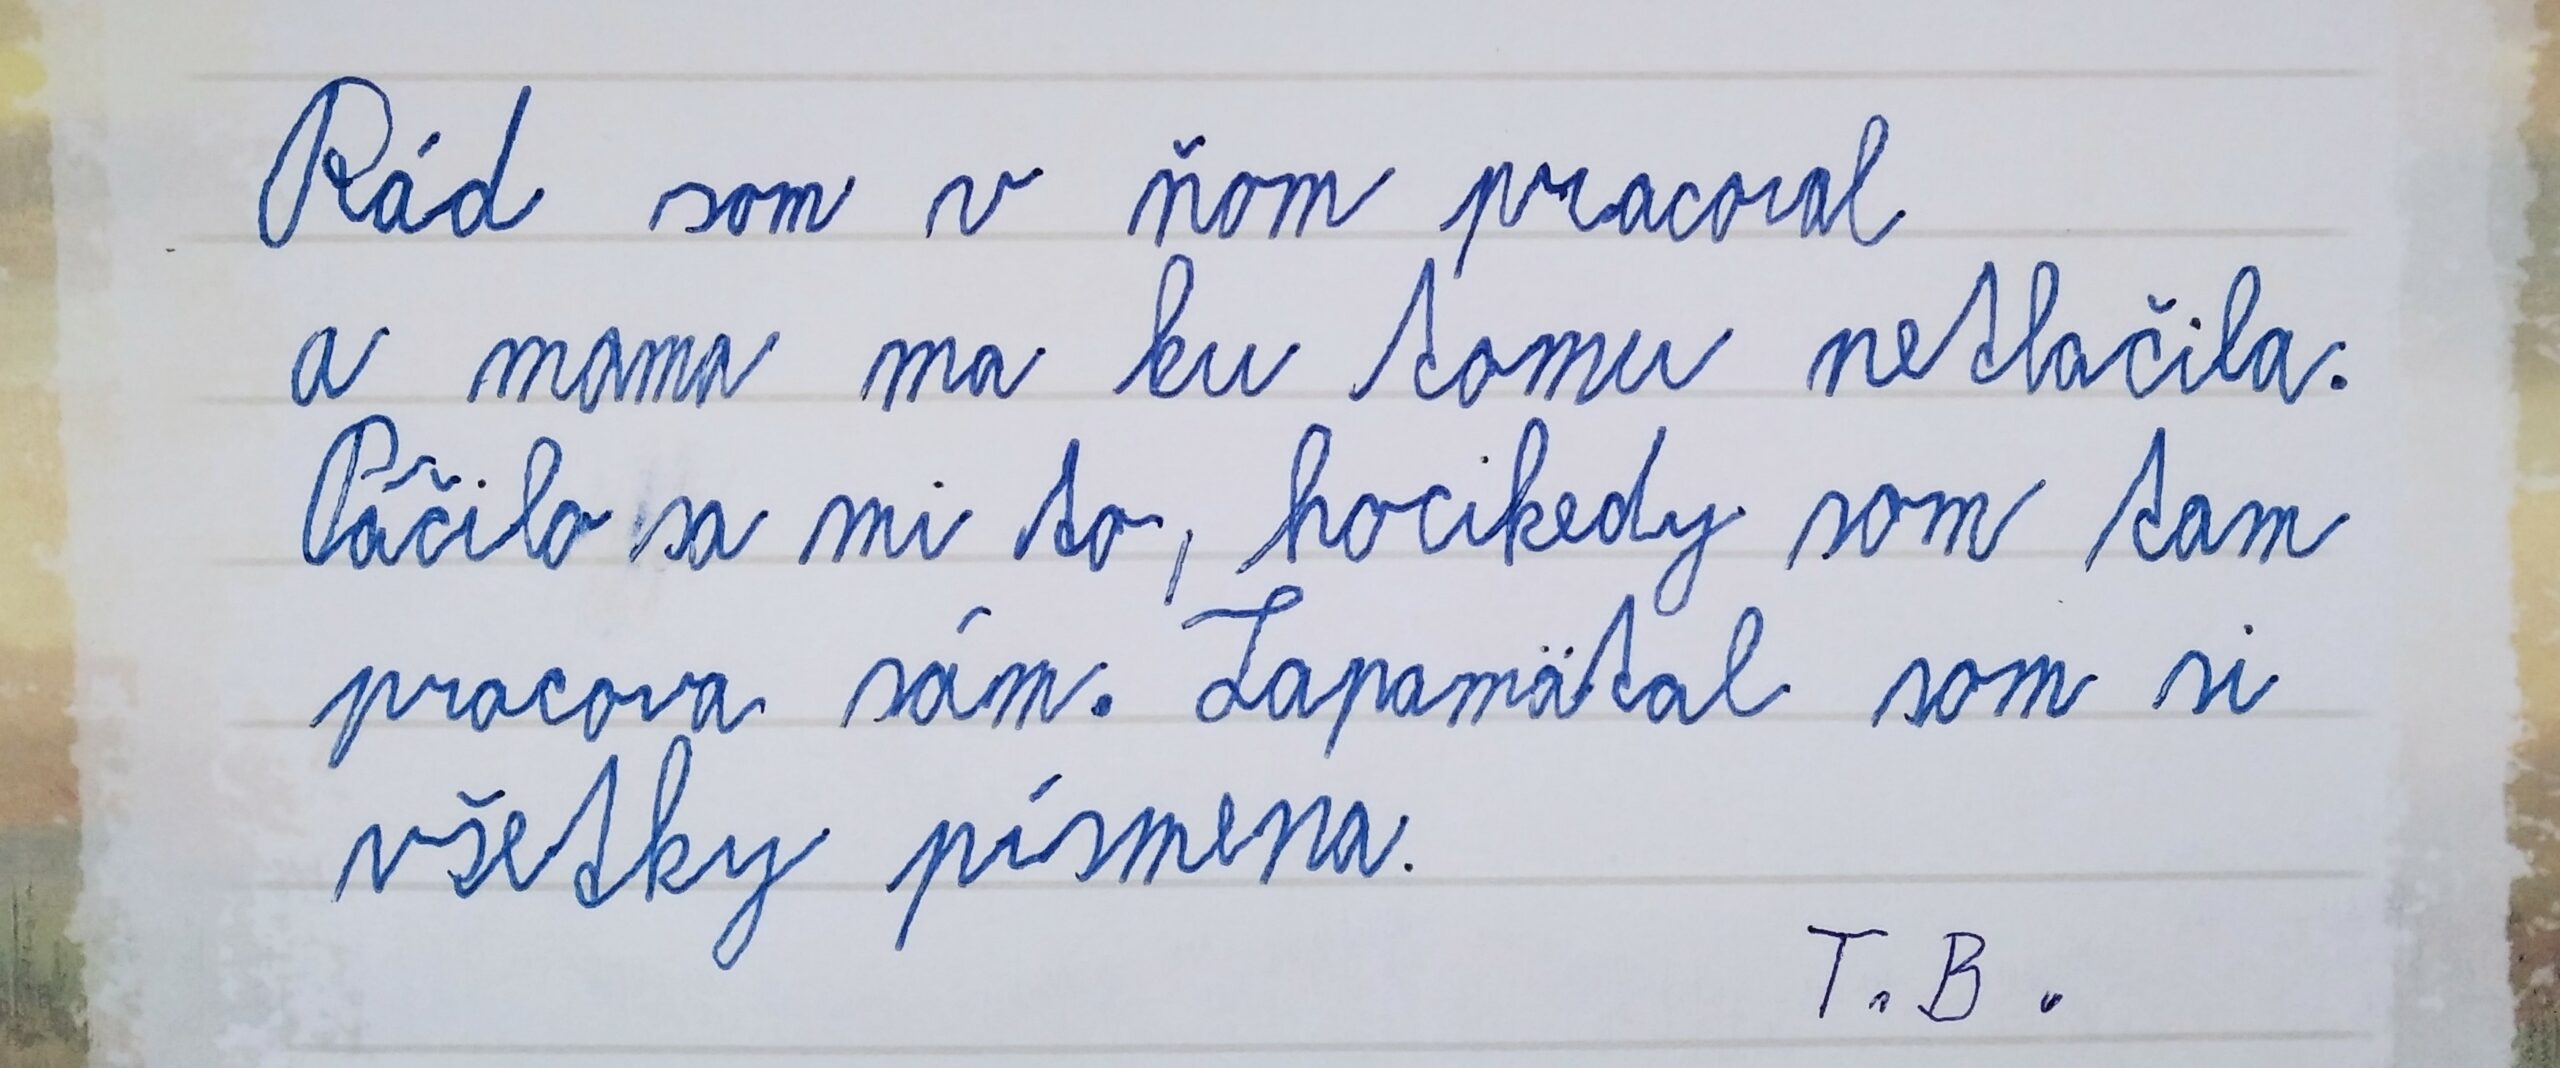 Rád som v ňom pracoval
a mama ma ku tomu netlačila.
Páčilo sa mi to, hocikedy som tam
pracova sám. Zapamätal som si
všetky písmena.
T.B.